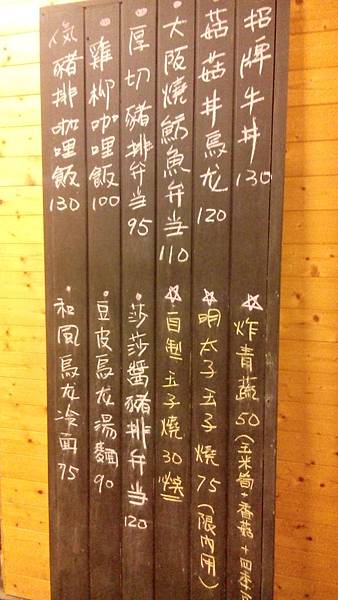 招牌牛丼 130
菇菇丼烏龙 120
大阪燒魴魚弁当 110
厚切豬排弁当 95
雞柳咖哩飯 100
豬排咖哩飯 130
炸青蔬 50 (玉米筍+香菇+四季豆
明太子玉子燒 75 (限內用)
自製玉子燒 30
莎莎醬豬排弁当 120
豆皮烏龙湯麵 90
和風烏龙冷面 75